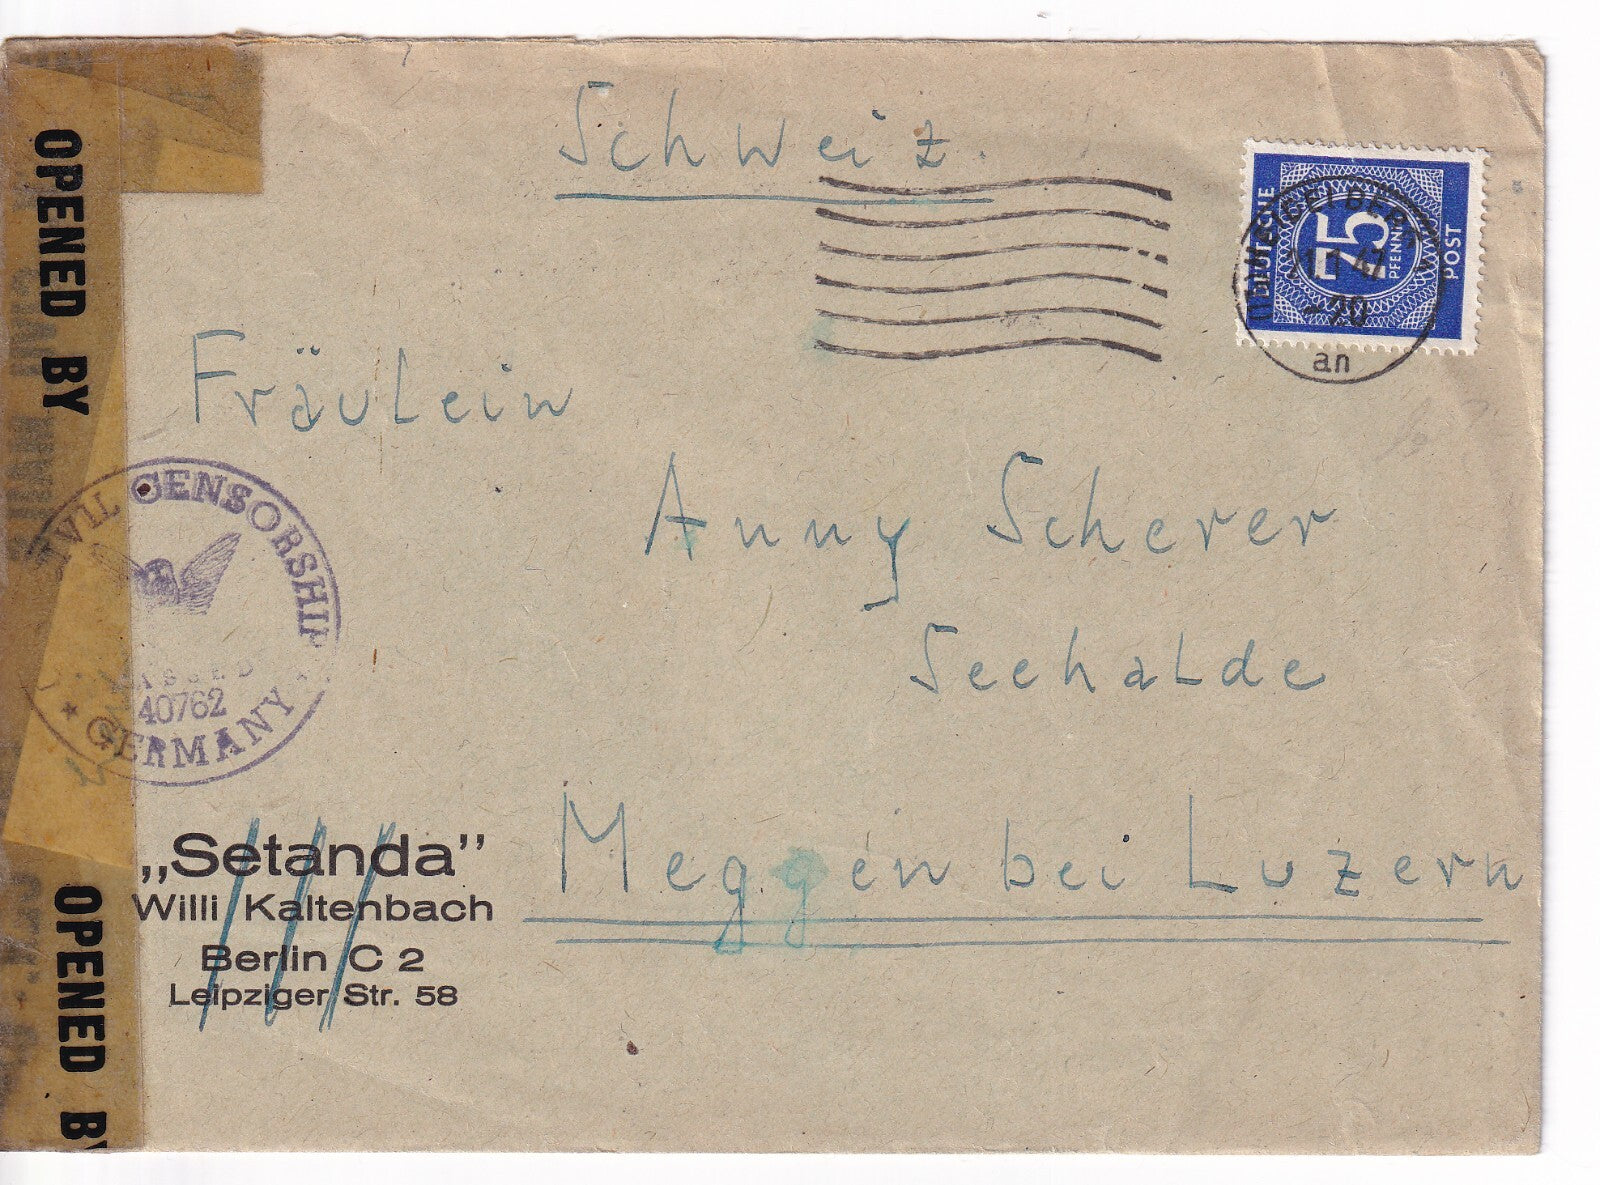 Schweiz.
DEUTSCHE POST
75
PFENNIG
21.1.47
-20
an
Fräulein
Anny Scherer
Seehalde
Meggen bei Luzern
OPENED BY
CIVIL CENSORSHIP
PASSED
40762
GERMANY
„Setanda”
Willi Kaltenbach
Berlin C 2
Leipziger Str. 58
OPENED BY